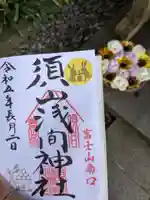 富士山南口
須山浅間神社
令和五年長月一日